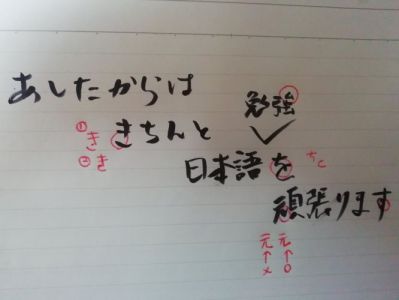 あしたからは
勉強
きちんと
① き
② き
日本語を
ちと
頑張ります
元 元
↑ ↑
× ○